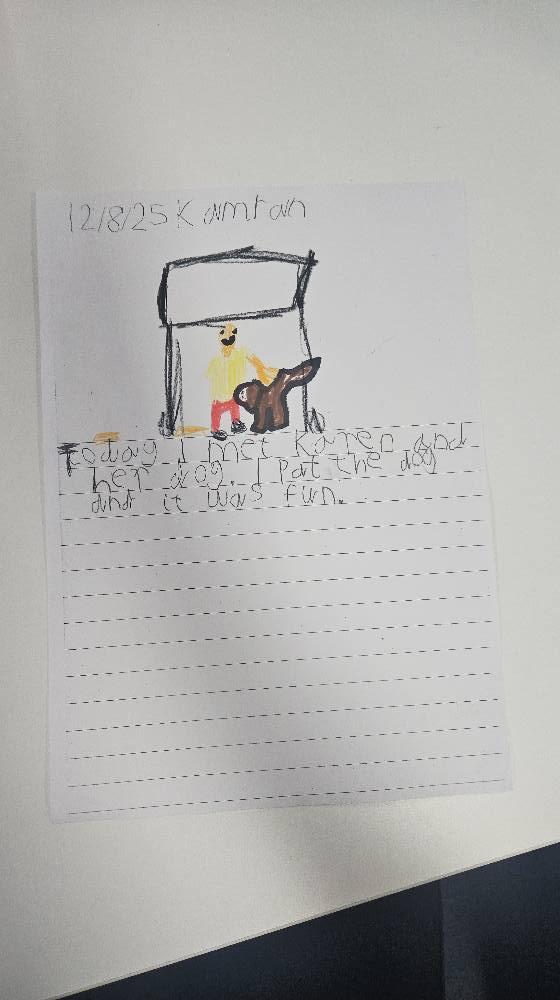 12/8/25 Kamran
Today I met Karen and
her dog. I Pat the dog
and it was fun.